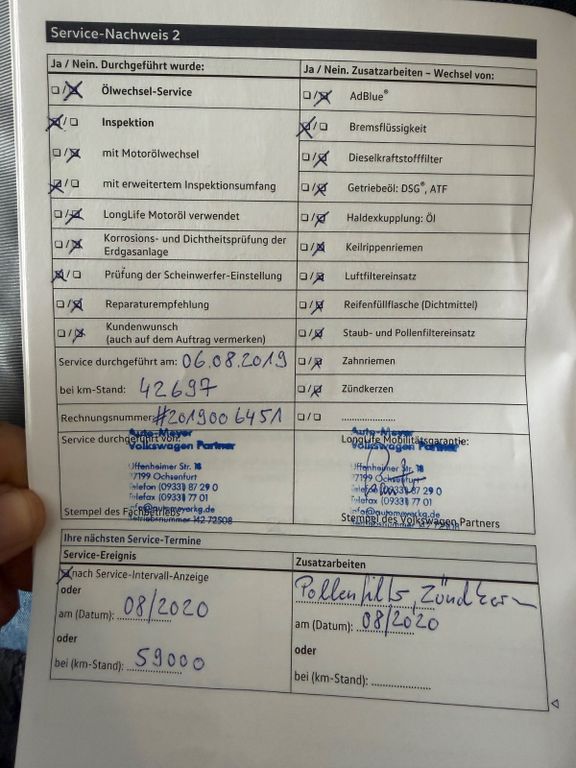 Service-Nachweis 2
Ja / Nein. Durchgeführt wurde:
Ölwechsel-Service
Inspektion
mit Motorölwechsel
mit erweitertem Inspektionsumfang
LongLife Motoröl verwendet
Korrosions- und Dichtheitsprüfung der
Erdgasanlage
Prüfung der Scheinwerfer-Einstellung
Reparaturempfehlung
Kundenwunsch
(auch auf dem Auftrag vermerken)
Service durchgeführt am: 06.08.2019
bei km-Stand: 42697
Rechnungsnummer: #2019006451
Service durchgeführt von:
Auto-Meyer
Volkswagen Partner
Uffenheimer Str. 18
97199 Ochsenfurt
Telefon (0933) 87 29 0
Telefax (09331) 77 01
info@automeyerkg.de
Betriebsnummer 142 72508
Stempel des Fachbetriebs
Ja / Nein. Zusatzarbeiten – Wechsel von:
AdBlue®
Bremsflüssigkeit
Dieselkraftstofffilter
Getriebeöl: DSG®, ATF
Haldexkupplung: Öl
Keilrippenriemen
Luftfiltereinsatz
Reifenfüllflasche (Dichtmittel)
Staub- und Pollenfiltereinsatz
Zahnriemen
Zündkerzen
LongLife Mobilitätsgarantie:
Auto-Meyer
Volkswagen Partner
Uffenheimer Str. 18
97199 Ochsenfurt
Telefon (0933) 87 29 0
Telefax (09331) 77 01
info@automeyerkg.de
Stempel des Volkswagen Partners
Ihre nächsten Service-Termine
Service-Ereignis
nach Service-Intervall-Anzeige
oder
am (Datum): 08/2020
oder
bei (km-Stand): 59000
Zusatzarbeiten
am (Datum): 08/2020
oder
bei (km-Stand):